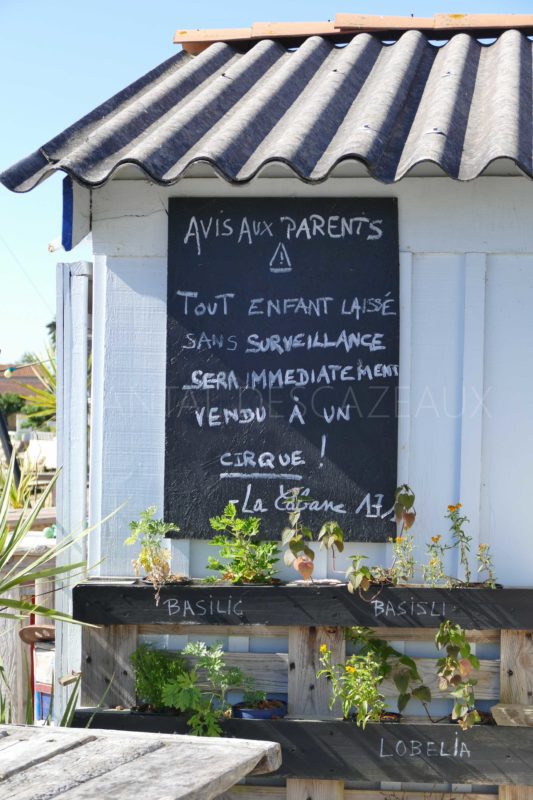 AVIS AUX PARENTS
!
TOUT ENFANT LAISSÉ
SANS SURVEILLANCE
SERA IMMEDIATEMENT
VENDU À UN
CIRQUE !
- La Cabane 171
BASILIC
BASISLI
LOBELIA